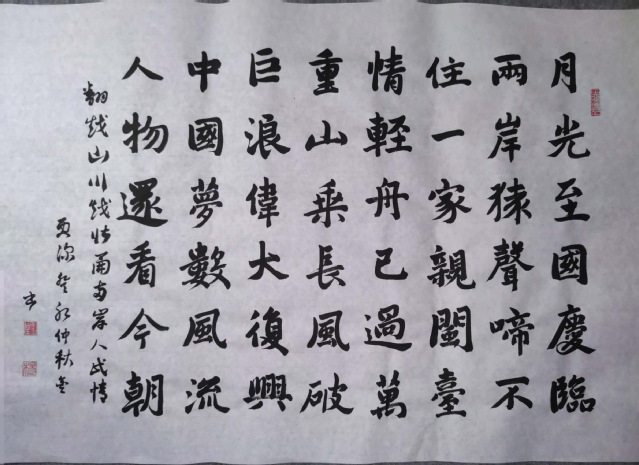 月光至國慶臨
兩岸猿聲啼不
住一家親閩臺
情輕舟已過萬
重山乘長風破
巨浪偉大復興
中國夢數風流
人物還看今朝
翻越山川
人民情
仲秋
書